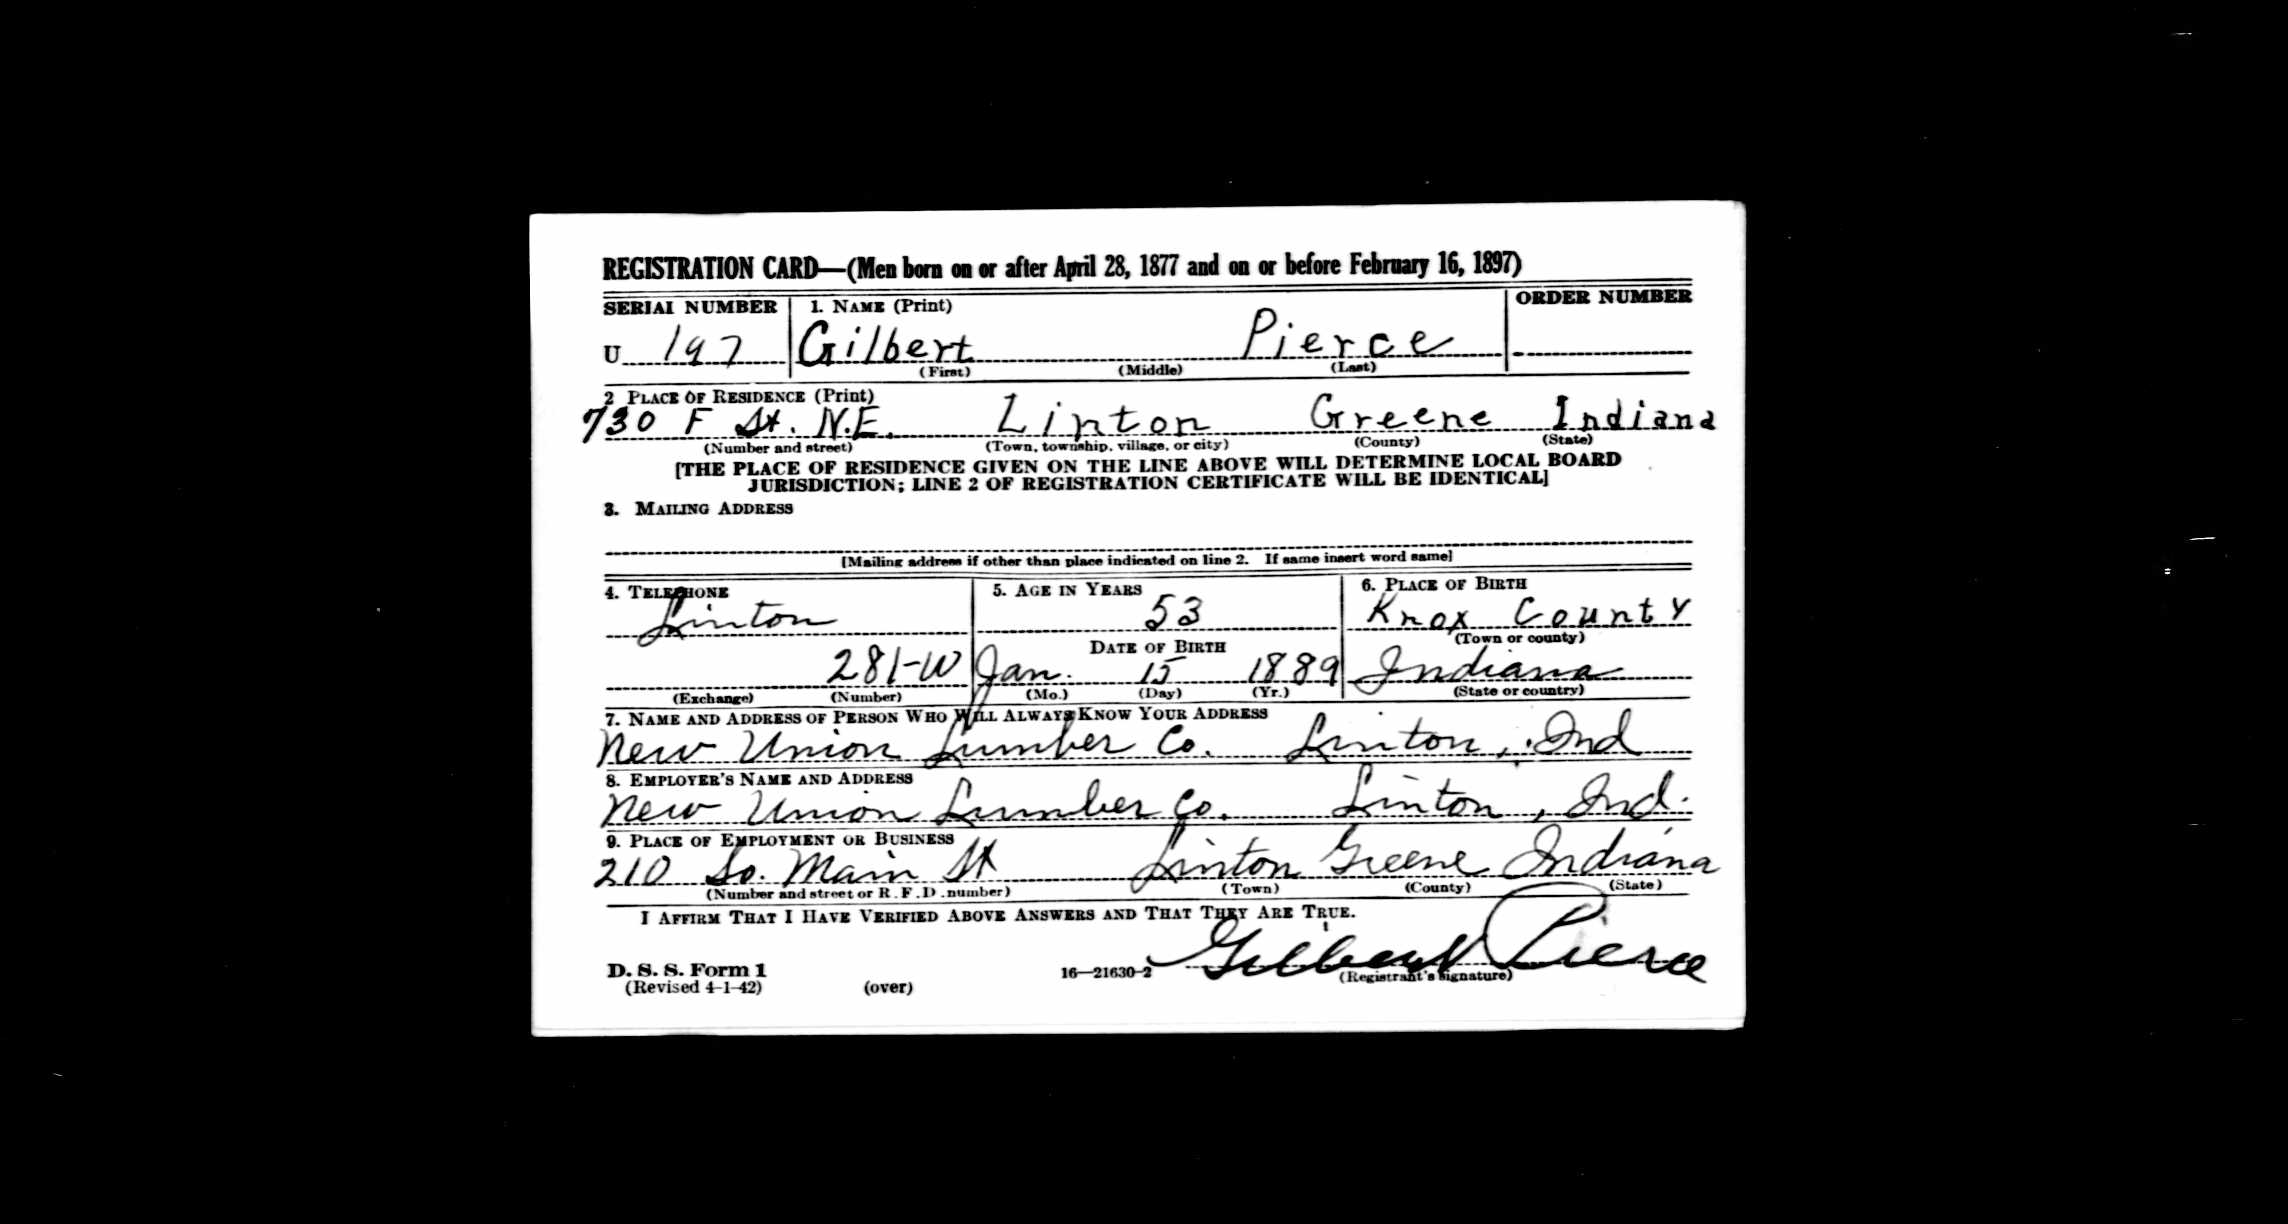 REGISTRATION CARD—(Men born on or after April 28, 1877 and on or before February 16, 1897)
SERIAL NUMBER 1. NAME (Print) ORDER NUMBER
U 197 Gilbert Pierce
(First) (Middle) (Last)
2 PLACE OF RESIDENCE (Print)
730 F St. N.E. Linton Greene Indiana
(Number and street) (Town, township, village, or city) (County) (State)
[THE PLACE OF RESIDENCE GIVEN ON THE LINE ABOVE WILL DETERMINE LOCAL BOARD
JURISDICTION; LINE 2 OF REGISTRATION CERTIFICATE WILL BE IDENTICAL]
3. MAILING ADDRESS
[Mailing address if other than place indicated on line 2. If same insert word same]
4. TELEPHONE 5. AGE IN YEARS 6. PLACE OF BIRTH
Linton 53 Knox County
DATE OF BIRTH (Town or county)
281-W Jan. 15 1889 Indiana
(Exchange) (Number) (Mo.) (Day) (Yr.) (State or country)
7. NAME AND ADDRESS OF PERSON WHO WILL ALWAYS KNOW YOUR ADDRESS
New Union Lumber Co. Linton, Ind
8. EMPLOYER'S NAME AND ADDRESS
New Union Lumber Co. Linton, Ind.
9. PLACE OF EMPLOYMENT OR BUSINESS
210 So. Main St Linton Greene Indiana
(Number and street or R. F. D. number) (Town) (County) (State)
I AFFIRM THAT I HAVE VERIFIED ABOVE ANSWERS AND THAT THEY ARE TRUE.
Gilbert Pierce
D. S. S. Form 1 16—21630-2 (Registrant's signature)
(Revised 4-1-42) (over)